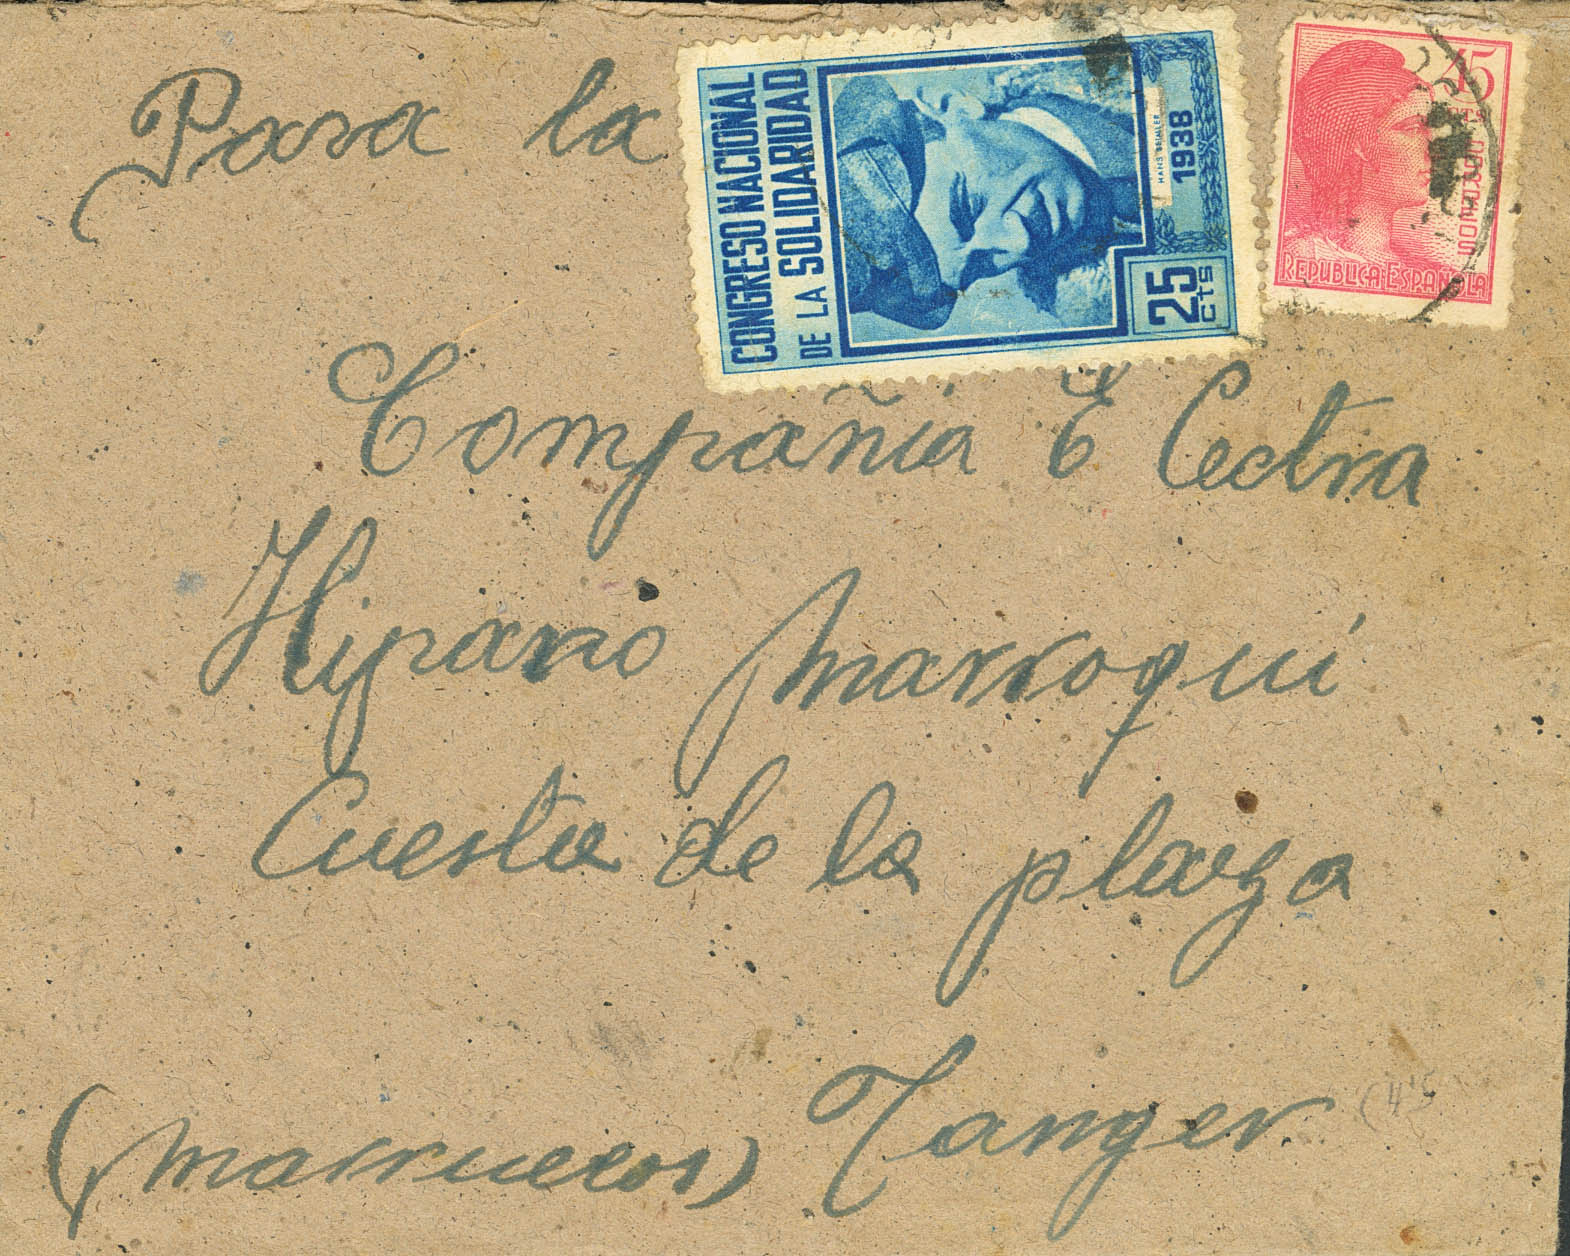 Para la
CONGRESO NACIONAL
DE LA SOLIDARIDAD
HANS BEIMLER
1938
25
CTS
45
CTS
CORREOS
REPUBLICA ESPAÑOLA
Compañia E Lectra
Hipano Marroqui
Cuesta de la playa
(Marruecos) Tanger
(4'5